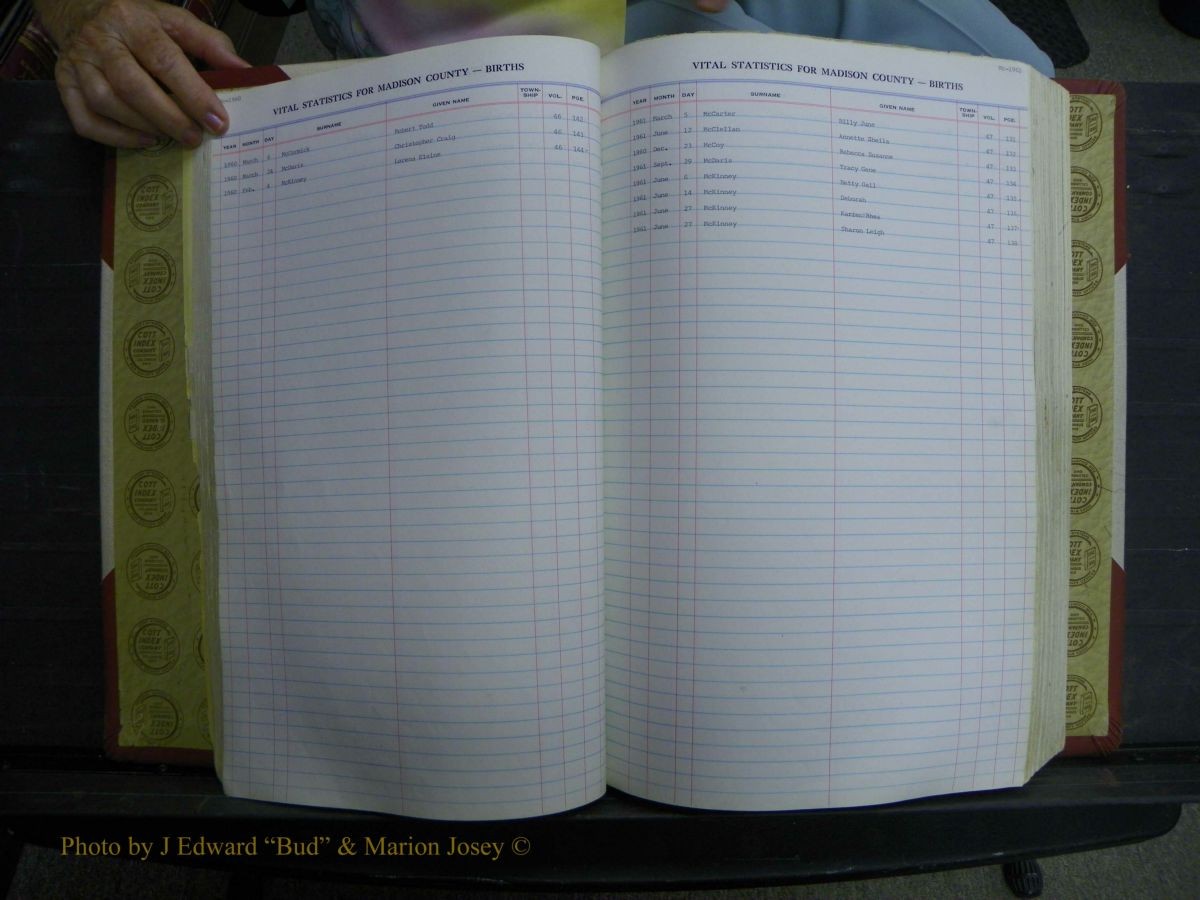 Mc-1960
VITAL STATISTICS FOR MADISON COUNTY — BIRTHS
YEAR MONTH DAY SURNAME GIVEN NAME TOWN-SHIP VOL. PGE.
1960 March 6 McCormick Robert Todd 46 142
1960 March 24 McDaris Christopher Craig 46 143
1960 Feb. 4 McKinney Lorena Elaine 46 144
VITAL STATISTICS FOR MADISON COUNTY — BIRTHS
YEAR MONTH DAY SURNAME GIVEN NAME TOWN-SHIP VOL. PGE.
1961 March 5 McCarter Billy June 47 131
1961 June 12 McClellan Annette Shella 47 132
1960 Dec. 23 McCoy Rebecca Suzanne 47 133
1961 Sept. 29 McDaris Tracy Gene 47 134
1961 June 6 McKinney Betty Gail 47 135
1961 June 14 McKinney Deborah 47 136
1961 June 27 McKinney Karen Rhea 47 137
1961 June 27 McKinney Sharon Leigh 47 138
COTT INDEX COMPANY
Photo by J Edward “Bud” & Marion Josey ©